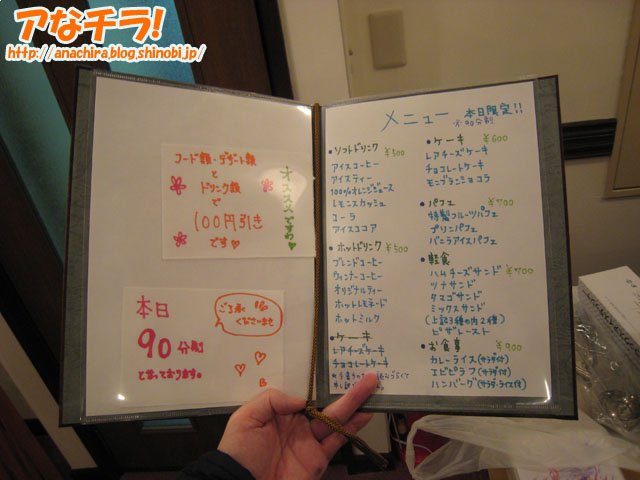 アなチラ!
http://anachira.blog.shinobi.jp/
フード類・デザート類
と
ドリンク類
で
100円引き
です♡
オススメですわ♥
本日
90分制
と言っております。
ご了承
くださいませ
メニュー 本日限定!!
※90分制
・ソフトドリンク ¥500
アイスコーヒー
アイスティー
100%オレンジジュース
レモンスカッシュ
コーラ
アイスココア
・ホットドリンク ¥500
ブレンドコーヒー
ウィンナーコーヒー
オリジナルティー
ホットレモネード
ホットミルク
・ケーキ
レアチーズケーキ
チョコレートケーキ
・ケーキ ¥600
レアチーズケーキ
チョコレートケーキ
モンブランショコラ
・パフェ ¥700
特製フルーツパフェ
プリンパフェ
バニラアイスパフェ
・軽食
ハムチーズサンド ¥700
ツナサンド
タマゴサンド
ミックスサンド
(上記3種の内2種)
ピザトースト
・お食事 ¥900
カレーライス(サラダ付)
エビピラフ(サラダ付)
ハンバーグ(サラダ・ライス付)